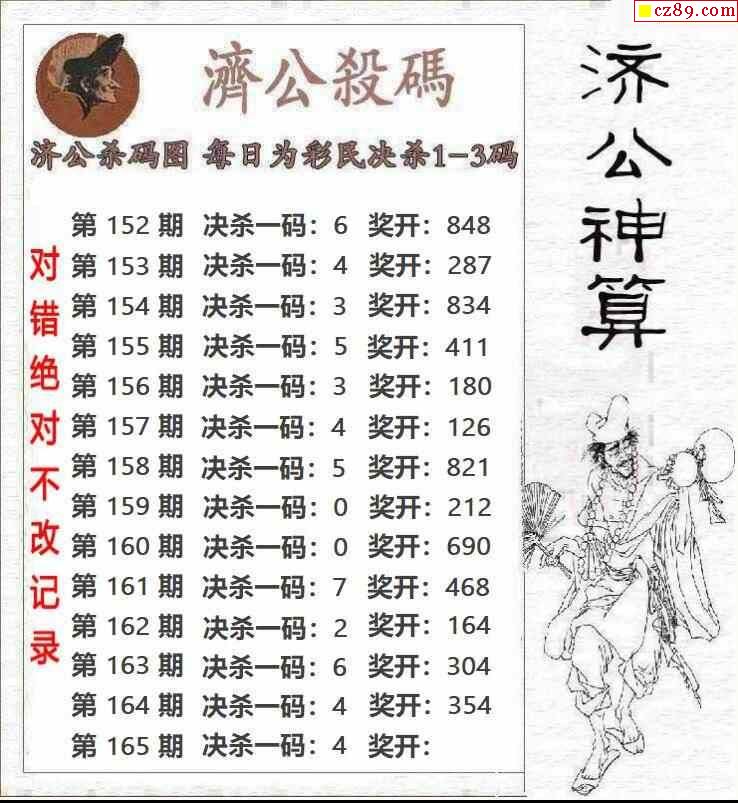 cz89.com
濟公殺碼
济公杀码图 每日为彩民决杀1-3码
第 152 期 决杀一码：6 奖开：848
第 153 期 决杀一码：4 奖开：287
第 154 期 决杀一码：3 奖开：834
第 155 期 决杀一码：5 奖开：411
第 156 期 决杀一码：3 奖开：180
第 157 期 决杀一码：4 奖开：126
第 158 期 决杀一码：5 奖开：821
第 159 期 决杀一码：0 奖开：212
第 160 期 决杀一码：0 奖开：690
第 161 期 决杀一码：7 奖开：468
第 162 期 决杀一码：2 奖开：164
第 163 期 决杀一码：6 奖开：304
第 164 期 决杀一码：4 奖开：354
第 165 期 决杀一码：4 奖开：
对错绝对不改记录
济公神算